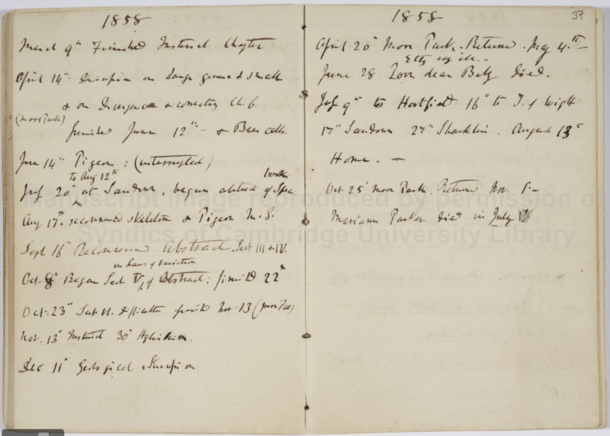 1858
March 9th Finished Instinct Chapter
April 14th Discussion on large genera & small
& on Divergence & correcting Ch. 6.
(Moor Park)
finished June 12th & Bees cells.
June 14th Pigeons: (interrupted)
to Aug 12th
July 20th at Sandown, began abstract of Species book
Aug 17th recommenced skeleton & Pigeon M.S.
Sept 16th Recommenced Abstract. Sect III & IV.
on Laws of Variation
Oct. 8th Began Sect V of Abstract: finished 22d
Oct. 23d Sect VI. difficulties finished Nov 13 (Moor Park)
Nov. 13th Instinct 30th Hybridism.
Dec 11th Geological Succession
1858
37
April 20th Moor Park. Return May 4th
Etty very ill.
June 28 Poor dear Baby died.
July 9th to Hartfield 16th to I. of Wight
17th Sandown 27th Shanklin. August 13th
Home. —
Oct 25th Moor Park. Return Nov. 1 —
Mariann Parker died in July 18
image reproduced by permission of
Syndics of Cambridge University Library